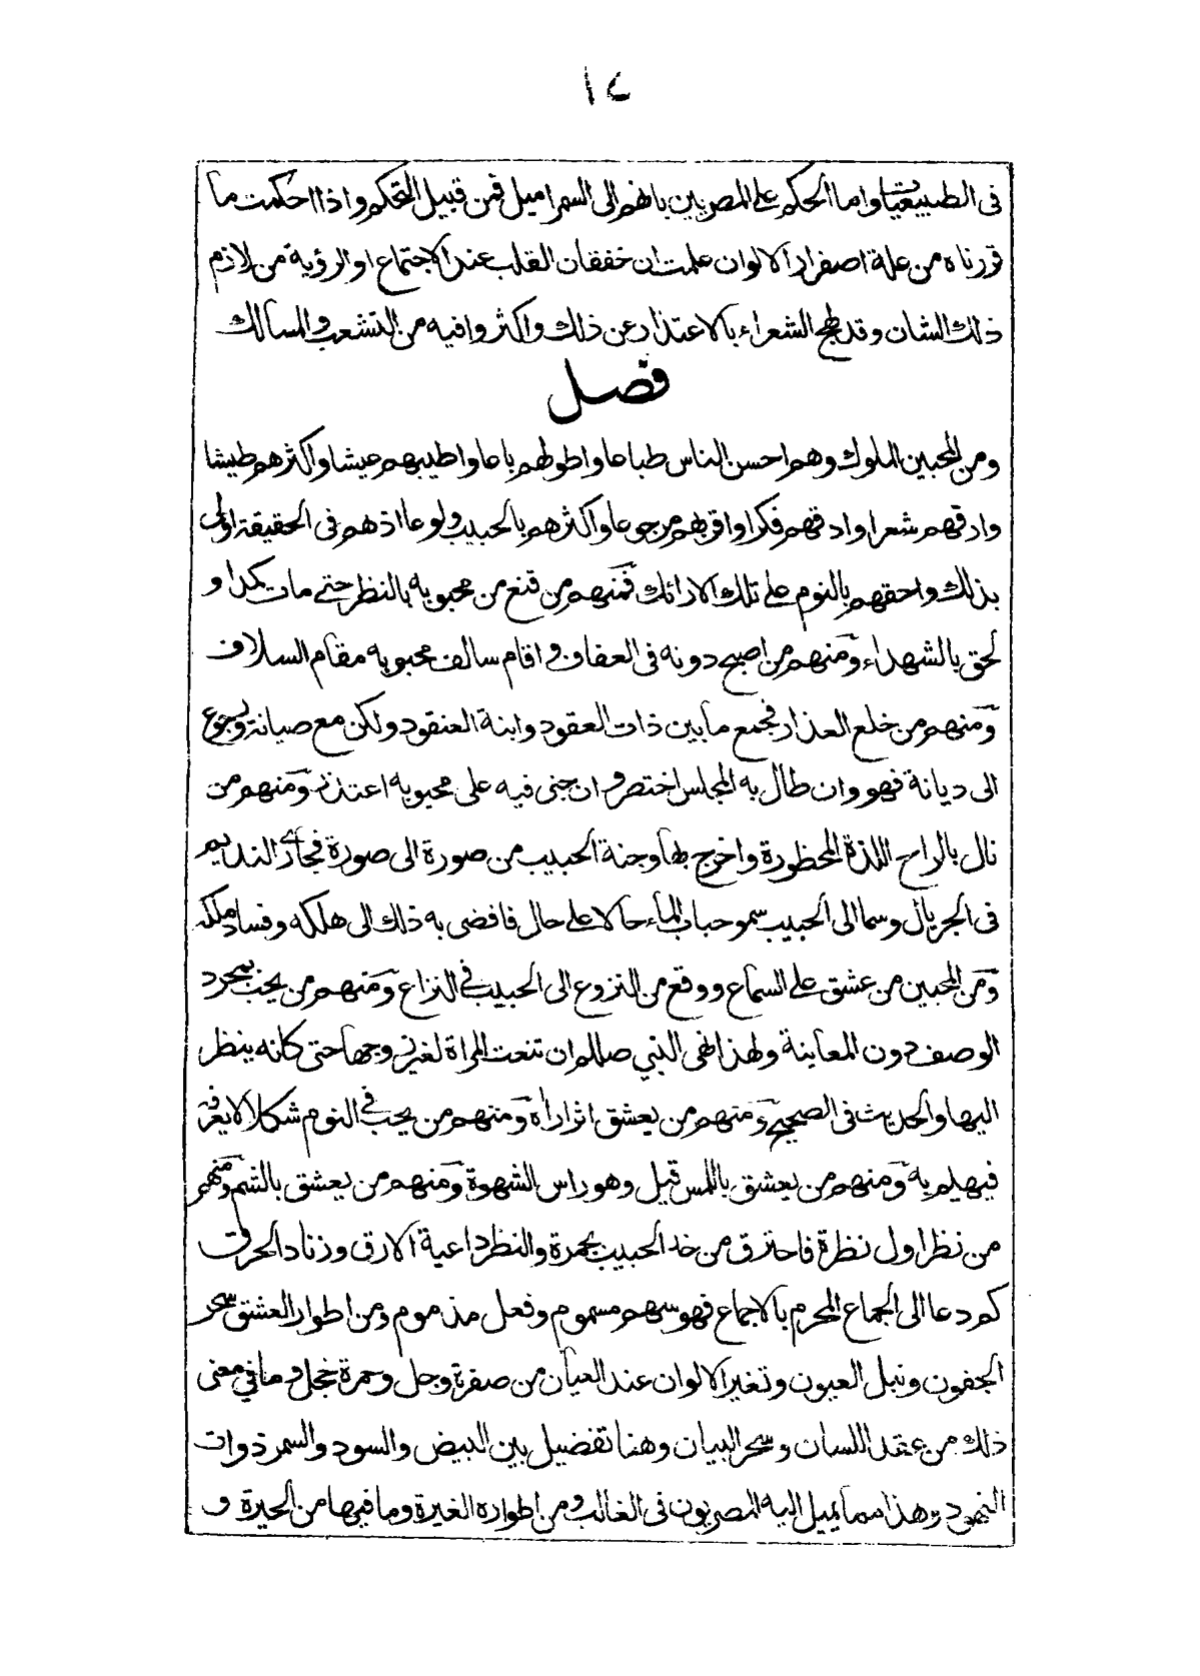 ١٤
فى الطبيعيات واما الحكم على المصريين بانهم الى السمر اميل فمن قبيل التحكم واذا احكمت ما
قررناه من علة اصفرار الالوان علمت ان خفقان القلب عند الاجتماع او الرؤية من لازم
ذلك الشان وقد لهج الشعراء بالاعتذار عن ذلك واكثروا فيه من التشعب والمسالك
فصل
ومن المحبين الملوك وهم احسن الناس طباعا واطولهم باعا واطيبهم عيشا واكثرهم طيشا
وارقهم شعرا وادقهم فكرا واقربهم رجوعا واكثرهم بالحبيب ولوعا اذ هم فى الحقيقة اولى
بذلك واحقهم بالنوم على تلك الارائك فمنهم من قنع من محبوبه بالنظر حتى مات كمدا و
لحق بالشهداء ومنهم من اصبح دونه فى العفاف واقام سالف محبوبه مقام السلاف
ومنهم من خلع العذار فجمع ما بين ذات العقود وابنة العنقود ولكن مع صيانة ورجوع
الى ديانة فهو وان طال به المجلس اختصر وان جنى فيه على محبوبه اعتذر ومنهم من
نال بالراح اللذة المحظورة واخرج بها وجنة الحبيب من صورة الى صورة فجارى النديم
فى الجريال وسما الى الحبيب سمو حباب الماء حالا على حال فافضى به ذلك الى هلكه وفساد ملكه
ومن المحبين من عشق على السماع ووقع من النزوع الى الحبيب فى النزاع ومنهم من يحب بمجرد
الوصف دون المعاينة ولهذا نهى النبي صللم ان تنعت المراة لغير زوجها حتى كانه ينظر
اليها والحديث فى الصحيح ومنهم من يعشق اثرا راه ومنهم من يحب فى النوم شكلا لا يعرفه
فيهيم به ومنهم من يعشق باللمس قيل وهو راس الشهوة ومنهم من يعشق بالشم ومنهم
من نظر اول نظرة فاحترق من خد الحبيب بجمرة والنظر داعية الارق وزناد الحرق
كم دعا الى الجماع المحرم بالاجماع فهو سهم مسموم وفعل مذموم ومن اطوار العشق سحر
الجفون ونبل العيون وتغير الالوان عند العيان من صفرة وجل وحمرة خجل وما في معنى
ذلك من عقد اللسان وسحر البيان وهنا تفضيل بين البيض والسود والسمر ذوات
النهود وهذا مما يميل اليه المصريون فى الغالب ومن اطواره الغيرة وما فيها من الحيرة و